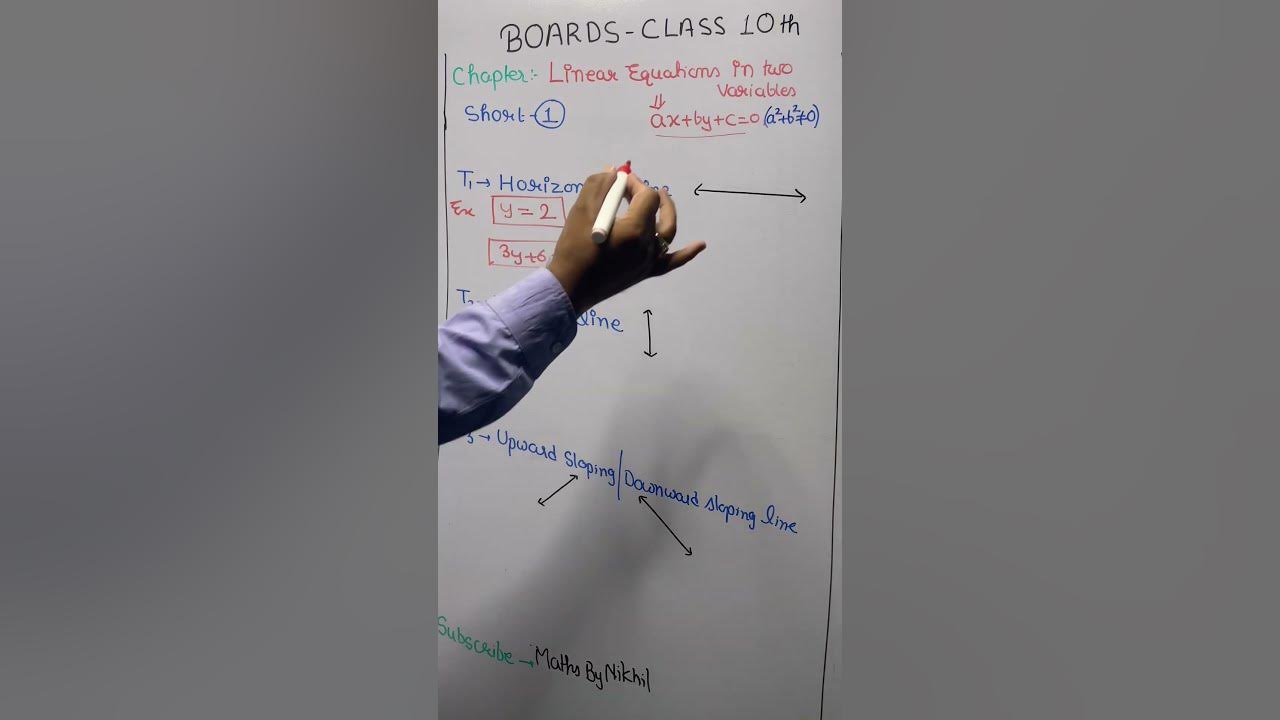 BOARDS-CLASS 10th
Chapter:- Linear Equations in two
Variables
Short-1
⇓
ax+by+c=0 (a²+b²≠0)
T₁→ Horizon
Ex y=2
3y+6
line
→ Upward Sloping/Downward sloping line
Subscribe → Maths By Nikhil